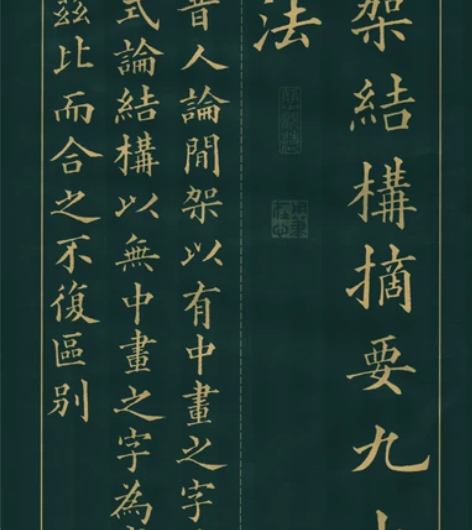 架結構摘要九十
法
昔人論間架以有中畫之字
式論結構以無中畫之字為
茲比而合之不復區別